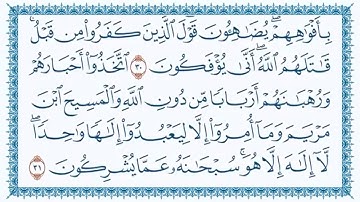 بِأَفْوَٰهِهِمْ ۖ يُضَٰهِـُٔونَ قَوْلَ ٱلَّذِينَ كَفَرُوا۟ مِن قَبْلُ ۚ
قَٰتَلَهُمُ ٱللَّهُ ۚ أَنَّىٰ يُؤْفَكُونَ ٣٠ ٱتَّخَذُوٓا۟ أَحْبَارَهُمْ
وَرُهْبَٰنَهُمْ أَرْبَابًا مِّن دُونِ ٱللَّهِ وَٱلْمَسِيحَ ٱبْنَ
مَرْيَمَ وَمَآ أُمِرُوٓا۟ إِلَّا لِيَعْبُدُوٓا۟ إِلَٰهًا وَٰحِدًا ۖ
لَّآ إِلَٰهَ إِلَّا هُوَ ۚ سُبْحَٰنَهُۥ عَمَّا يُشْرِكُونَ ٣١